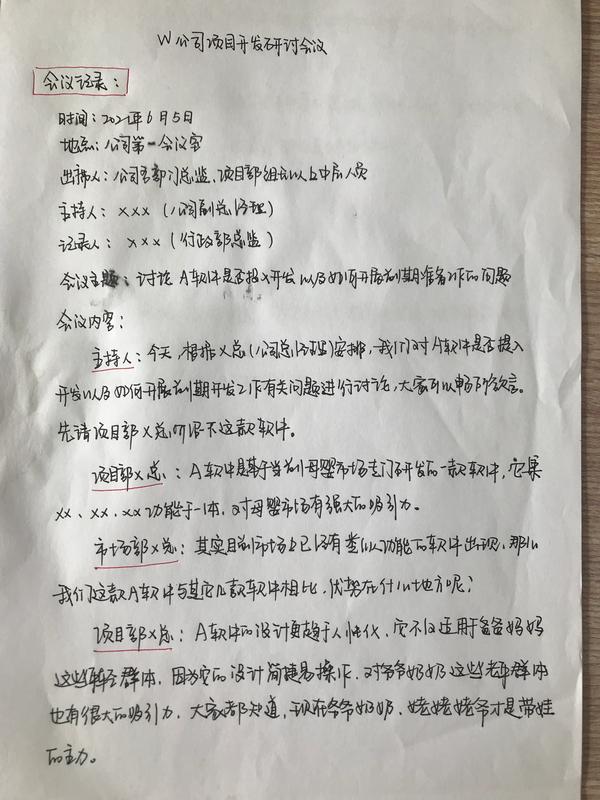 W公司项目开发研讨会议
会议记录：
时间：2021年6月5日
地点：公司第一会议室
出席人：公司各部门总监、项目部组长以上中层人员
主持人：×××（公司副总经理）
记录人：×××（行政部总监）
会议主题：讨论A软件是否投入开发以及如何开展前期准备工作的问题
会议内容：
主持人：今天，根据×总（公司总经理）安排，我们对A软件是否投入
开发以及如何开展前期开发工作有关问题进行讨论，大家可以畅所欲言。
先请项目部×总介绍下这款软件。
项目部×总：A软件是基于当前母婴市场专门研发的一款软件，它集
××、××、××功能于一体，对母婴市场有强大的吸引力。
市场部×总：其实目前市场上已经有类似功能的软件出现，那么
我们这款A软件与其它几款软件相比，优势在什么地方呢？
项目部×总：A软件的设计更趋于人性化，它不仅适用于爸爸妈妈
这些年轻群体，因为它的设计简捷易操作，对爷爷奶奶这些老年群体
也有很大的吸引力，大家都知道，现在爷爷奶奶、姥姥姥爷才是带娃
的主力。